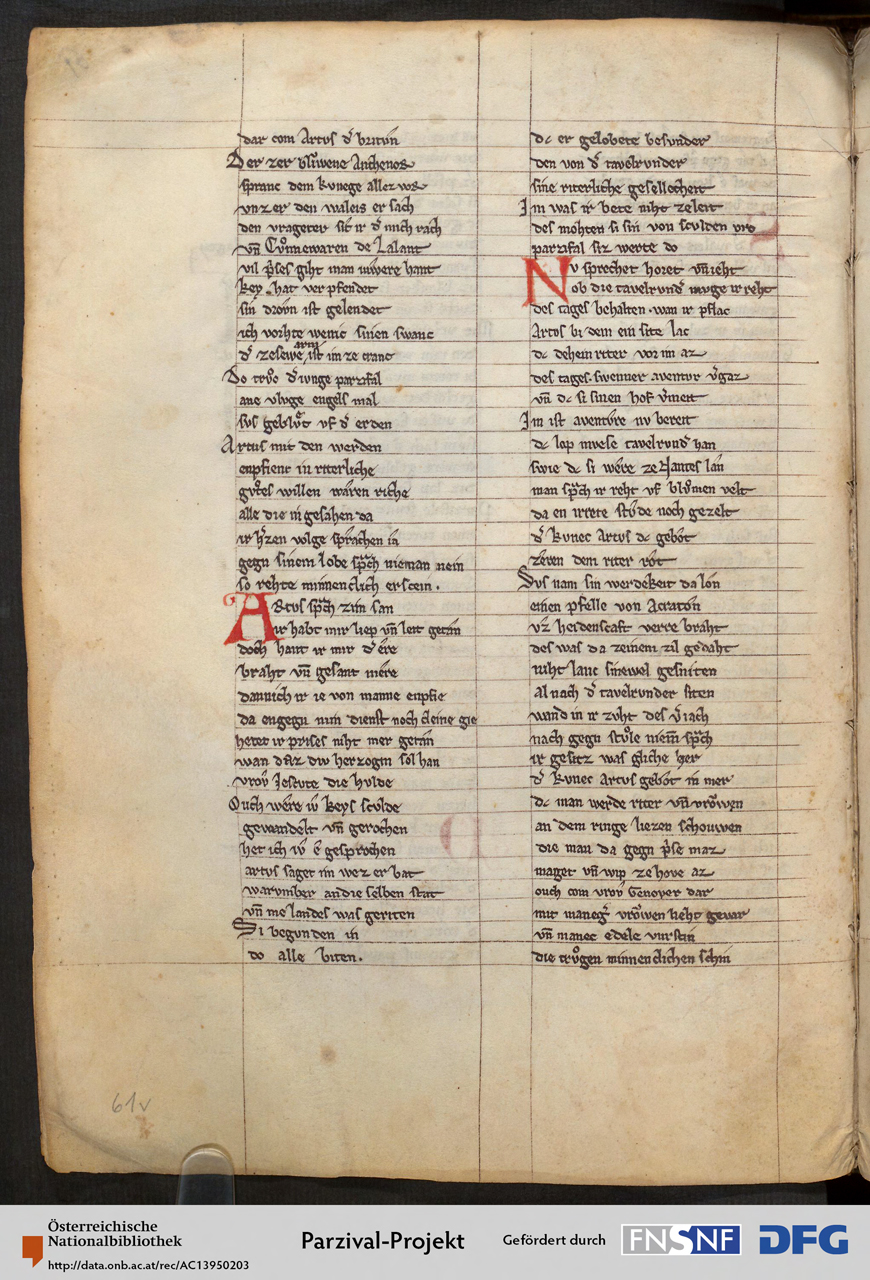 dar com Artvs d͛ britvn
Der zer blv̓wene Anthenor
spranc dem kvnege allez vor
vnz er den waleis er sach
den vrageter sit ir d͛ mich rach
vn̄ Cv̓nnewaren de Lalant
vil p͛ses giht man iuwere hant
key hat ver pfendet
sin dro͑vn ist gelendet
ich vorhte wenic sinen swanc
d͛ zeswe arm ist im ze cranc
Do trv̊c d͛ ivnge parzifal
ane vlvge engels mal
svs geblv̊t vf d͛ erden
Artus mit den werden
enpfienc in riterliche
gv̊tes willen waren riche
alle die in gesahen da
ir h͛zen volge sprachen ia
gegn sinem lobe sp͛ch nieman nein
so rehte minnenclich er scein.
Artvs sp͛ch zim san
ir habt mir liep vn̄ leit getan
doch hant ir mir d͛ ere
braht vn̄ gesant mere
dannich ir ie von manne enpfie
da engegn min dienst noch cleine gie
hetet ir prises niht mer getan
wan daz div herzogin sol han
vrov Jescute die hvlde
Ouch were iv̓ keys scvlde
gewandelt vn̄ gerochen
het ich iv̓ e gesprochen
artvs saget im wez er bat
warvmber an die selben stat
vn̄ me landes was geriten
Si begvnden in
do alle biten.
dc er gelobete besvnder
den von d͛ tavelrvnder
sine riterliche gesellecheit
Im was ir bete niht ze leit
des mohten si sin von scvlden vro
parzifal siz werte do
Nv sprechet horet vn̄ ieht
ob die tavelrvnd͛ mvge ir reht
des tages behalten. wan ir pflac
Artvs bi dem ein site lac
dc dehein riter vor im az
des tages. swenner aventivr v͛gaz
vn̄ dc si sinen hof v͛meit
Im ist aventv̓re nv bereit
dc lop mvese tavelrvnd͛ han
swie dc si were ze Nantes lan
man sp͛ch ir reht vf blv̊men velt
da en irrete stv̊de noch gezelt
d͛ kvnec Artvs dc gebot
zeren dem riter rot
Svs nam sin werdekeit da lon
einen pfelle von Acraton
vz heidenscaft verre braht
des was da zeinem zil gedaht
niht lanc sinewel gesniten
al nach d͛ tavelrvnder siten
wand in ir zvht des v͛iach
nach gegn stv̊le niem̄ sp͛ch
ir gesitz was gliche her
d͛ kvnec Artvs gebot in mer
dc man werde riter vn̄ vrowen
an dem ringe liezen schouwen
die man da gegn p͛se maz
maget vn̄ wip ze hove az
ouch com vrov Genover dar
mit maneg͛ vrowen lieht gevar
vn̄ manec edele vurstin
die trv̊gen minnenclichen schin
61v
Österreichische
Nationalbibliothek
http://data.onb.ac.at/rec/AC13950203
Parzival-Projekt
Gefördert durch
FNSNF
DFG